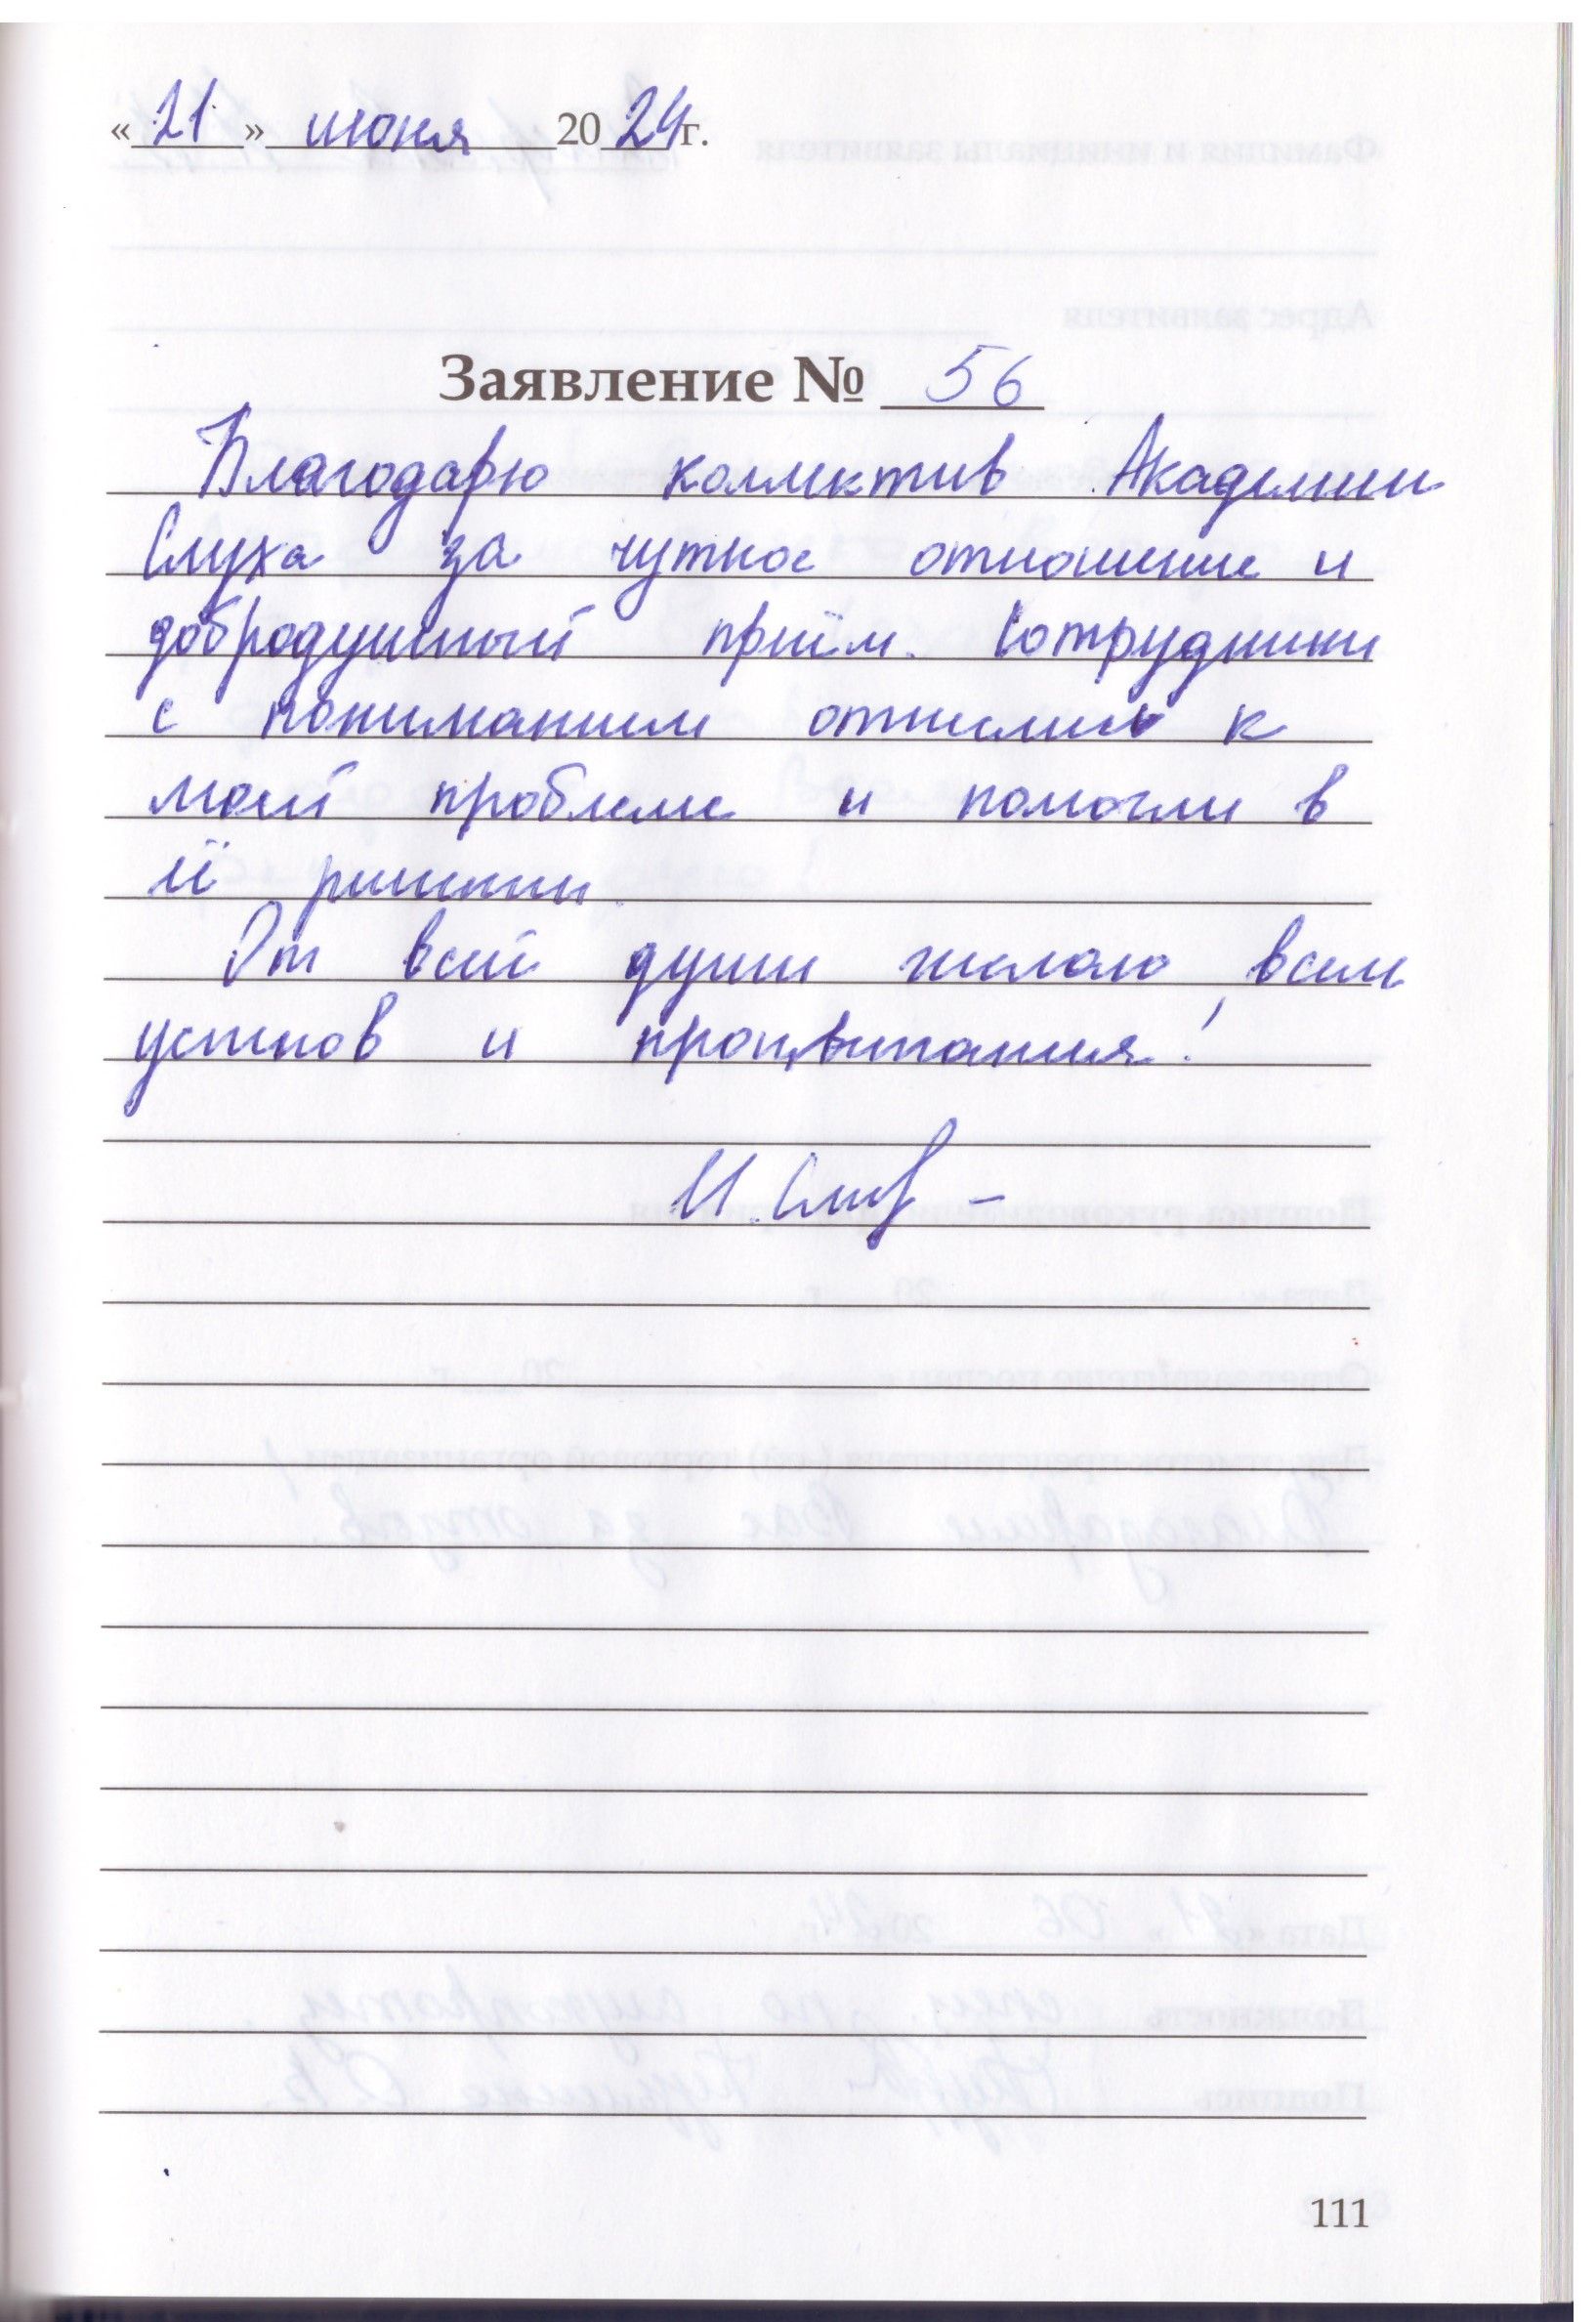 « 21 » июня 2024г.
Заявление № 56
Благодарю коллектив Академии
Слуха за чуткое отношение и
добродушный приём. Сотрудники
с пониманием отнеслись к
моей проблеме и помогли в
её решении.
От всей души желаю всем
успехов и процветания!
И.
111